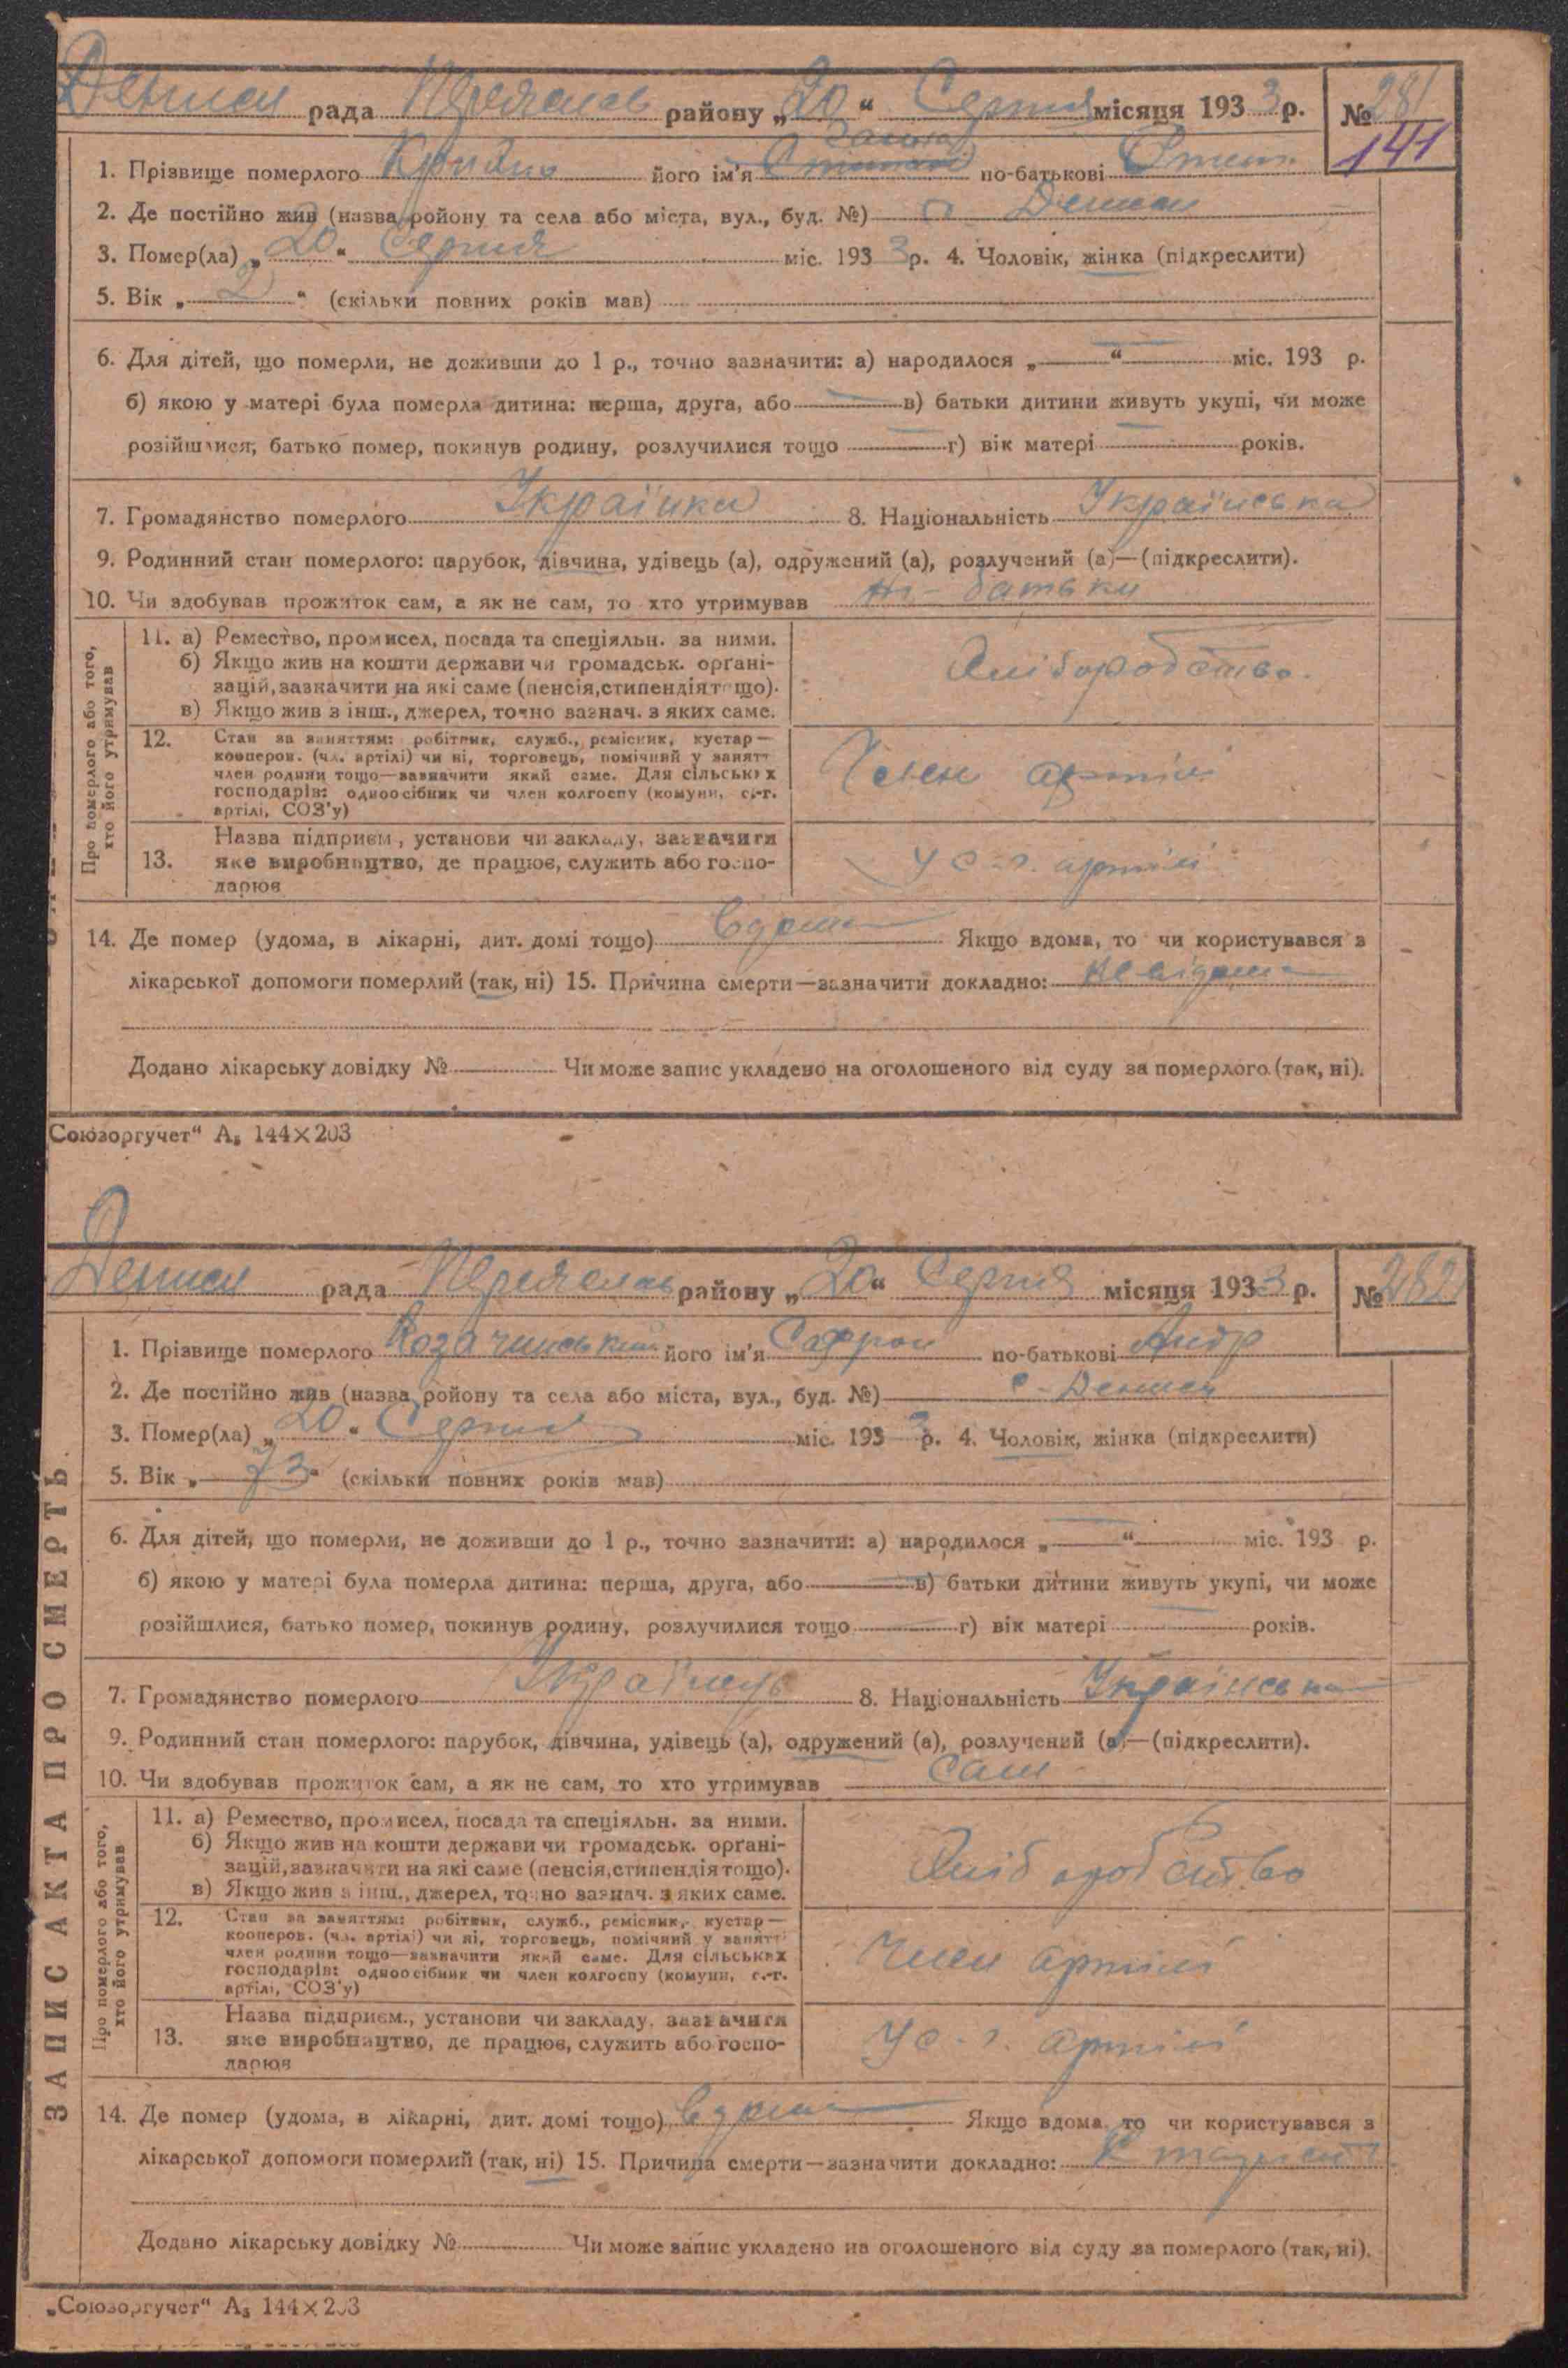 Дениси рада Переяслав району „20“ Серпня місяця 1933 р. № 281
141
1. Прізвище померлого його ім'я по-батькові Степ.
2. Де постійно жив (назва ройону та села або міста, вул., буд. №) с Дениси
3. Помер(ла) „20“ Серпня міс. 193 3 р. 4. Чоловік, жінка (підкреслити)
5. Вік „2“ (скільки повних років мав)
6. Для дітей, що померли, не доживши до 1 р., точно зазначити: а) народилося „—“ міс. 193 р.
б) якою у матері була померла дитина: перша, друга, або — в) батьки дитини живуть укупі, чи може
розійшлися, батько помер, покинув родину, розлучилися тощо — г) вік матері — років.
7. Громадянство померлого Українка 8. Національність Українська
9. Родинний стан померлого: парубок, дівчина, удівець (а), одружений (а), розлучений (а)—(підкреслити).
10. Чи здобував прожиток сам, а як не сам, то хто утримував Ні - батьки
Про померлого або того, хто його утримував
11. а) Ремество, промисел, посада та спеціяльн. за ними.
б) Якщо жив на кошти держави чи громадськ. органі-
зацій, зазначити на які саме (пенсія, стипендія тощо).
в) Якщо жив з інш., джерел, точно вазнач. з яких саме.
Хліборобство.
12. Стан за заняттям: робітник, служб., ремісник, кустар—
кооперов. (чл. артілі) чи ні, торговець, помічний у занятт
член родини тощо—зазначити який саме. Для сільських
господарів: одноосібник чи член колгоспу (комуни, с.-г.
артілі, СОЗ'у)
Член артілі
13. Назва підприєм., установи чи закладу, зазначити
яке виробництво, де працює, служить або госпо-
дарює
У с-г. артілі
14. Де помер (удома, в лікарні, дит. домі тощо) Вдома Якщо вдома, то чи користувався з
лікарської допомоги померлий (так, ні) 15. Причина смерти—зазначити докладно: Невідома
Додано лікарську довідку № Чи може запис укладено на оголошеного від суду за померлого (так, ні).
Союзоргучет“ А₅ 144×203
ЗАПИС АКТА ПРО СМЕРТЬ.
Дениси рада Переяслав району „20“ Серпня місяця 1933 р. № 282
1. Прізвище померлого Козачинський його ім'я Сафрон по-батькові Андр
2. Де постійно жив (назва ройону та села або міста, вул., буд. №) с - Дениси
3. Помер(ла) „20“ Серпня міс. 193 3 р. 4. Чоловік, жінка (підкреслити)
5. Вік „73“ (скільки повних років мав)
6. Для дітей, що померли, не доживши до 1 р., точно зазначити: а) народилося „—“ міс. 193 р.
б) якою у матері була померла дитина: перша, друга, або — в) батьки дитини живуть укупі, чи може
розійшлися, батько помер, покинув родину, розлучилися тощо — г) вік матері — років.
7. Громадянство померлого Українець 8. Національність Українська
9. Родинний стан померлого: парубок, дівчина, удівець (а), одружений (а), розлучений (а)—(підкреслити).
10. Чи здобував прожиток сам, а як не сам, то хто утримував Сам
Про померлого або того, хто його утримував
11. а) Ремество, промисел, посада та спеціяльн. за ними.
б) Якщо жив на кошти держави чи громадськ. органі-
зацій, зазначити на які саме (пенсія, стипендія тощо).
в) Якщо жив з інш., джерел, точно вазнач. з яких саме.
Хліборобство
12. Стан за заняттям: робітник, служб., ремісник, кустар—
кооперов. (чл. артілі) чи ні, торговець, помічний у занятт
член родини тощо—зазначити який саме. Для сільських
господарів: одноосібник чи член колгоспу (комуни, с.-г.
артілі, СОЗ'у)
Член артілі
13. Назва підприєм., установи чи закладу, зазначити
яке виробництво, де працює, служить або госпо-
дарює
У с-г. артілі
14. Де помер (удома, в лікарні, дит. домі тощо) Вдома Якщо вдома, то чи користувався з
лікарської допомоги померлий (так, ні) 15. Причина смерти—зазначити докладно:
Додано лікарську довідку № Чи може запис укладено на оголошеного від суду за померлого (так, ні).
„Союзоргучет“ А₅ 144×203